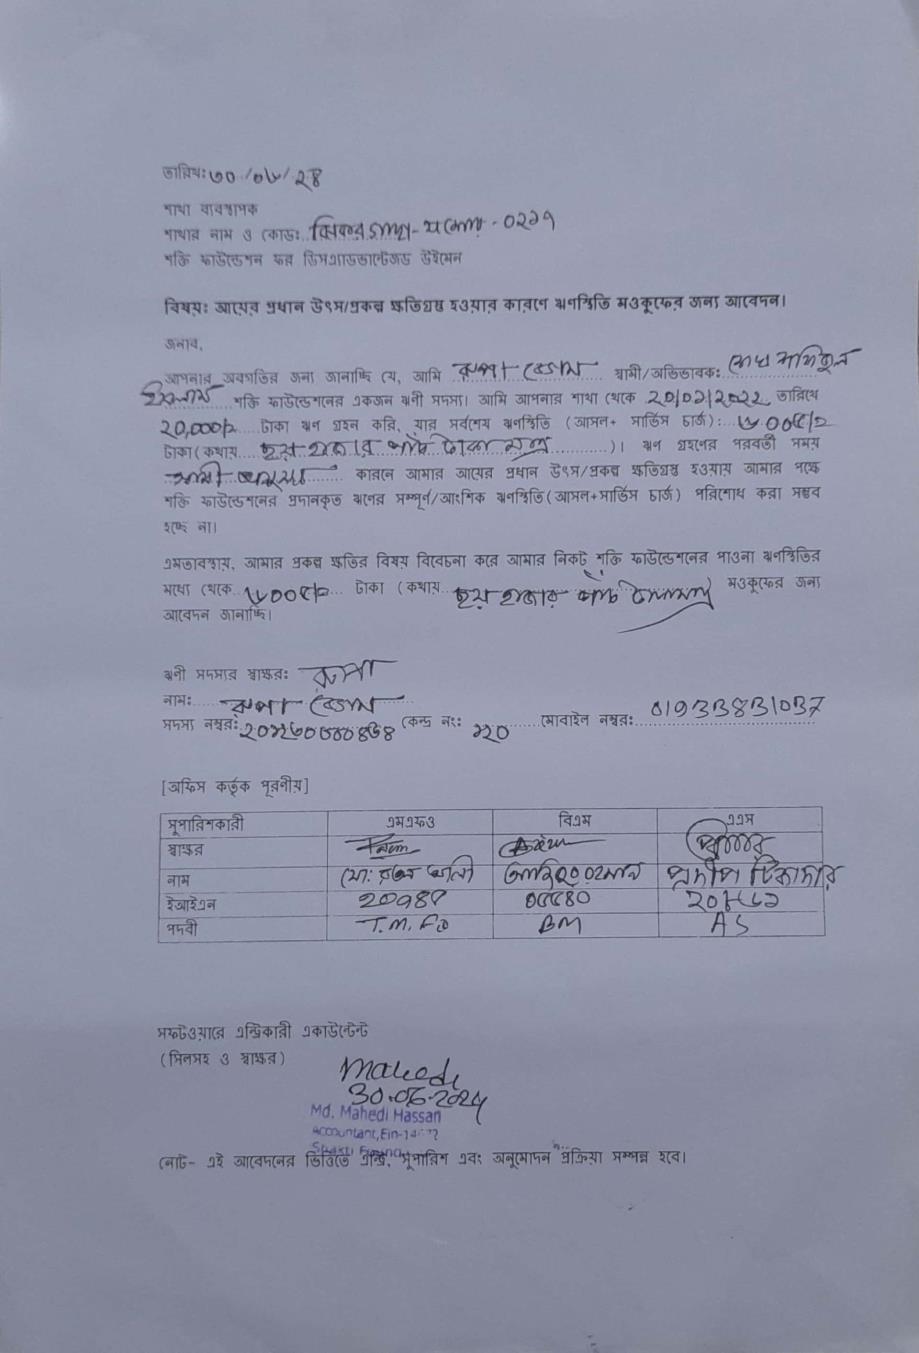 তারিখঃ ৩০/০৬/২৪
শাখা ব্যবস্থাপক
শাখার নাম ও কোডঃ ঝিকরগাছা-যশোর-০২১৭
শক্তি ফাউন্ডেশন ফর ডিসএ্যাডভান্টেজড উইমেন
বিষয়ঃ আয়ের প্রধান উৎস/প্রকল্প ক্ষতিগ্রস্ত হওয়ার কারণে ঋণস্থিতি মওকুফের জন্য আবেদন।
জনাব,
আপনার অবগতির জন্য জানাচ্ছি যে, আমি রুপা বেগম স্বামী/অভিভাবকঃ
ইসলাম শক্তি ফাউন্ডেশনের একজন ঋনী সদস্য। আমি আপনার শাখা থেকে তারিখে
20,000/= টাকা ঋণ গ্রহন করি, যার সর্বশেষ ঋণস্থিতি (আসল+ সার্ভিস চার্জ): ৬০০৫/=
টাকা (কথায় ছয় হাজার পাঁচ টাকা মাত্র)। ঋণ গ্রহণের পরবর্তী সময়
কারনে আমার আয়ের প্রধান উৎস/প্রকল্প ক্ষতিগ্রস্ত হওয়ায় আমার পক্ষে
শক্তি ফাউন্ডেশনের প্রদানকৃত ঋণের সম্পূর্ণ/আংশিক ঋণস্থিতি(আসল+সার্ভিস চার্জ) পরিশোধ করা সম্ভব
হচ্ছে না।
এমতাবস্থায়, আমার প্রকল্প ক্ষতির বিষয় বিবেচনা করে আমার নিকট শক্তি ফাউন্ডেশনের পাওনা ঋণস্থিতির
মধ্যে থেকে ৬০০৫/= টাকা (কথায় ছয় হাজার পাঁচ টাকা মাত্র) মওকুফের জন্য
আবেদন জানাচ্ছি।
ঋনী সদস্যর স্বাক্ষরঃ রুপা
নামঃ রুপা বেগম
সদস্য নম্বরঃ কেন্দ্র নং: ১২০ মোবাইল নম্বরঃ 01933831037
[অফিস কর্তৃক পূরণীয়]
সুপারিশকারী এমএফও বিএম এএস
স্বাক্ষর
নাম মো: আলী প্রদীপ টিকাদার
ইআইএন
পদবী T.M.Fo BM AS
সফটওয়ারে এন্ট্রিকারী একাউন্টেন্ট
(সিলসহ ও স্বাক্ষর)
Mahedi
30.06.2024
Md. Mahedi Hassan
Accountant, Ein-
Shakti
নোট- এই আবেদনের ভিত্তিতে এন্ট্রি, সুপারিশ এবং অনুমোদন প্রক্রিয়া সম্পন্ন হবে।